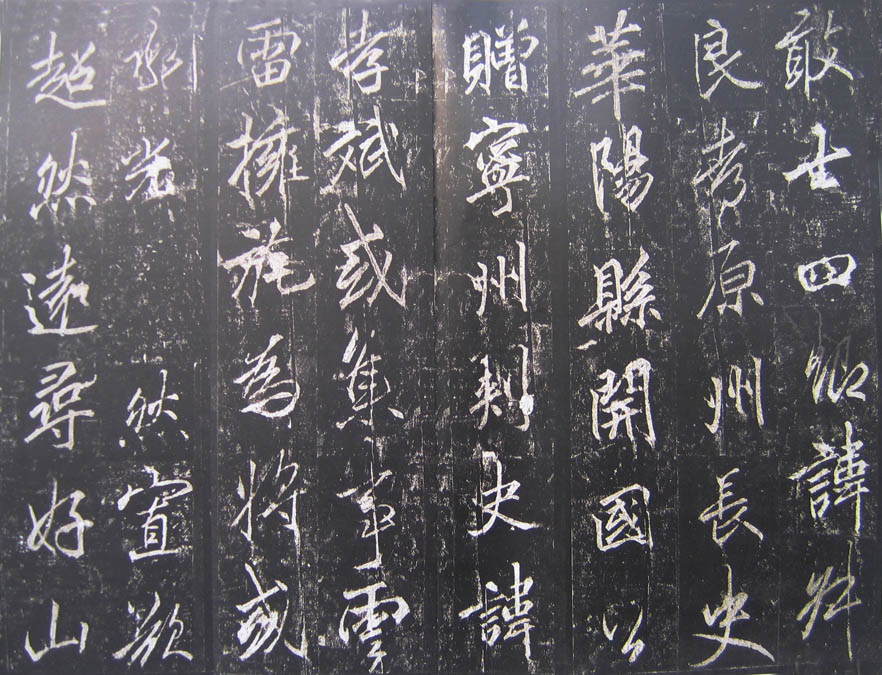 敢士四卿諱叔
良考原州長史
華陽縣開國公
贈寧州刺史諱
孝斌或集事雲
雷擁旄為將或
光然宣
超然遠尋好山